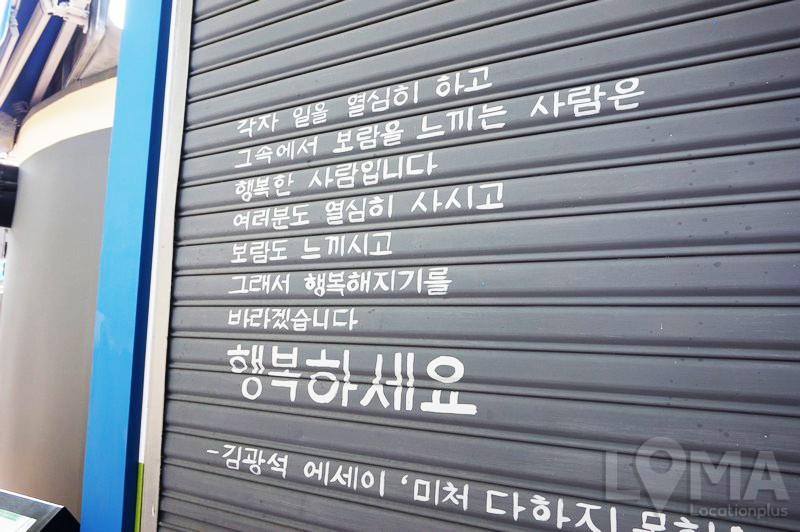 각자 일을 열심히 하고
그속에서 보람을 느끼는 사람은
행복한 사람입니다
여러분도 열심히 사시고
보람도 느끼시고
그래서 행복해지기를
바라겠습니다
행복하세요
-김광석 에세이 '미처 다하지
LOMA
Locationplus